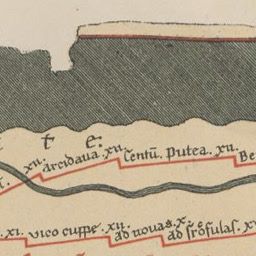 t e
xii. Arcidaua. xii. Centū. Putea. xii. Be
xi. vico cuppe. xii. ad nouas. x. ad scrofulas. x